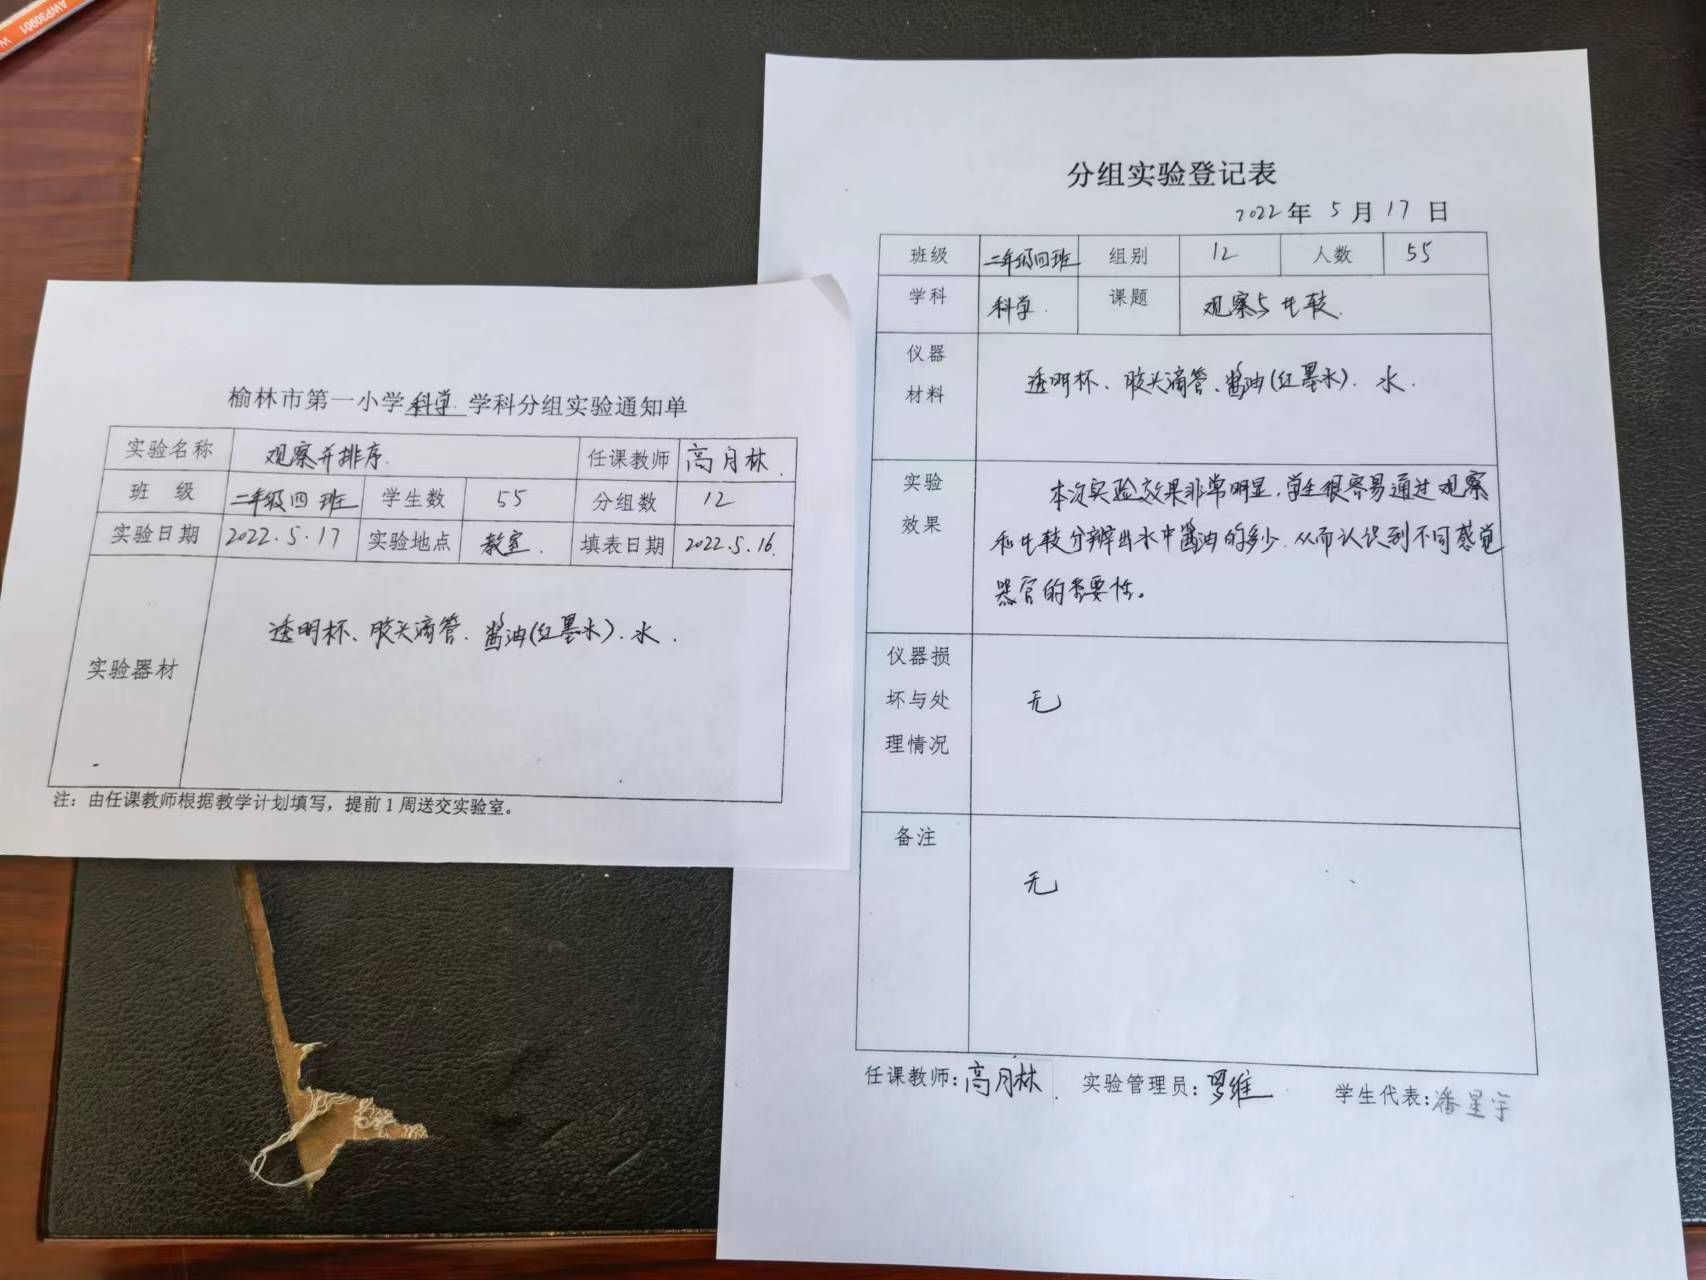 AWP30901
榆林市第一小学科学学科分组实验通知单
实验名称 观察并排序. 任课教师 高月林.
班 级 二年级四班 学生数 55 分组数 12
实验日期 2022.5.17 实验地点 教室. 填表日期 2022.5.16.
实验器材 透明杯、胶头滴管、酱油(红墨水).水.
注：由任课教师根据教学计划填写，提前1周送交实验室。
分组实验登记表
2022年 5月 17日
班级 二年级四班 组别 12 人数 55
学科 科学. 课题 观察与比较.
仪器
材料
透明杯、胶头滴管、酱油(红墨水). 水.
实验
效果
本次实验效果非常明显,学生很容易通过观察
和比较分辨出水中酱油的多少.从而认识到不同感觉
器官的重要性。
仪器损
坏与处
理情况
无
备注
无
任课教师:高月林. 实验管理员:罗维 学生代表:潘星宇